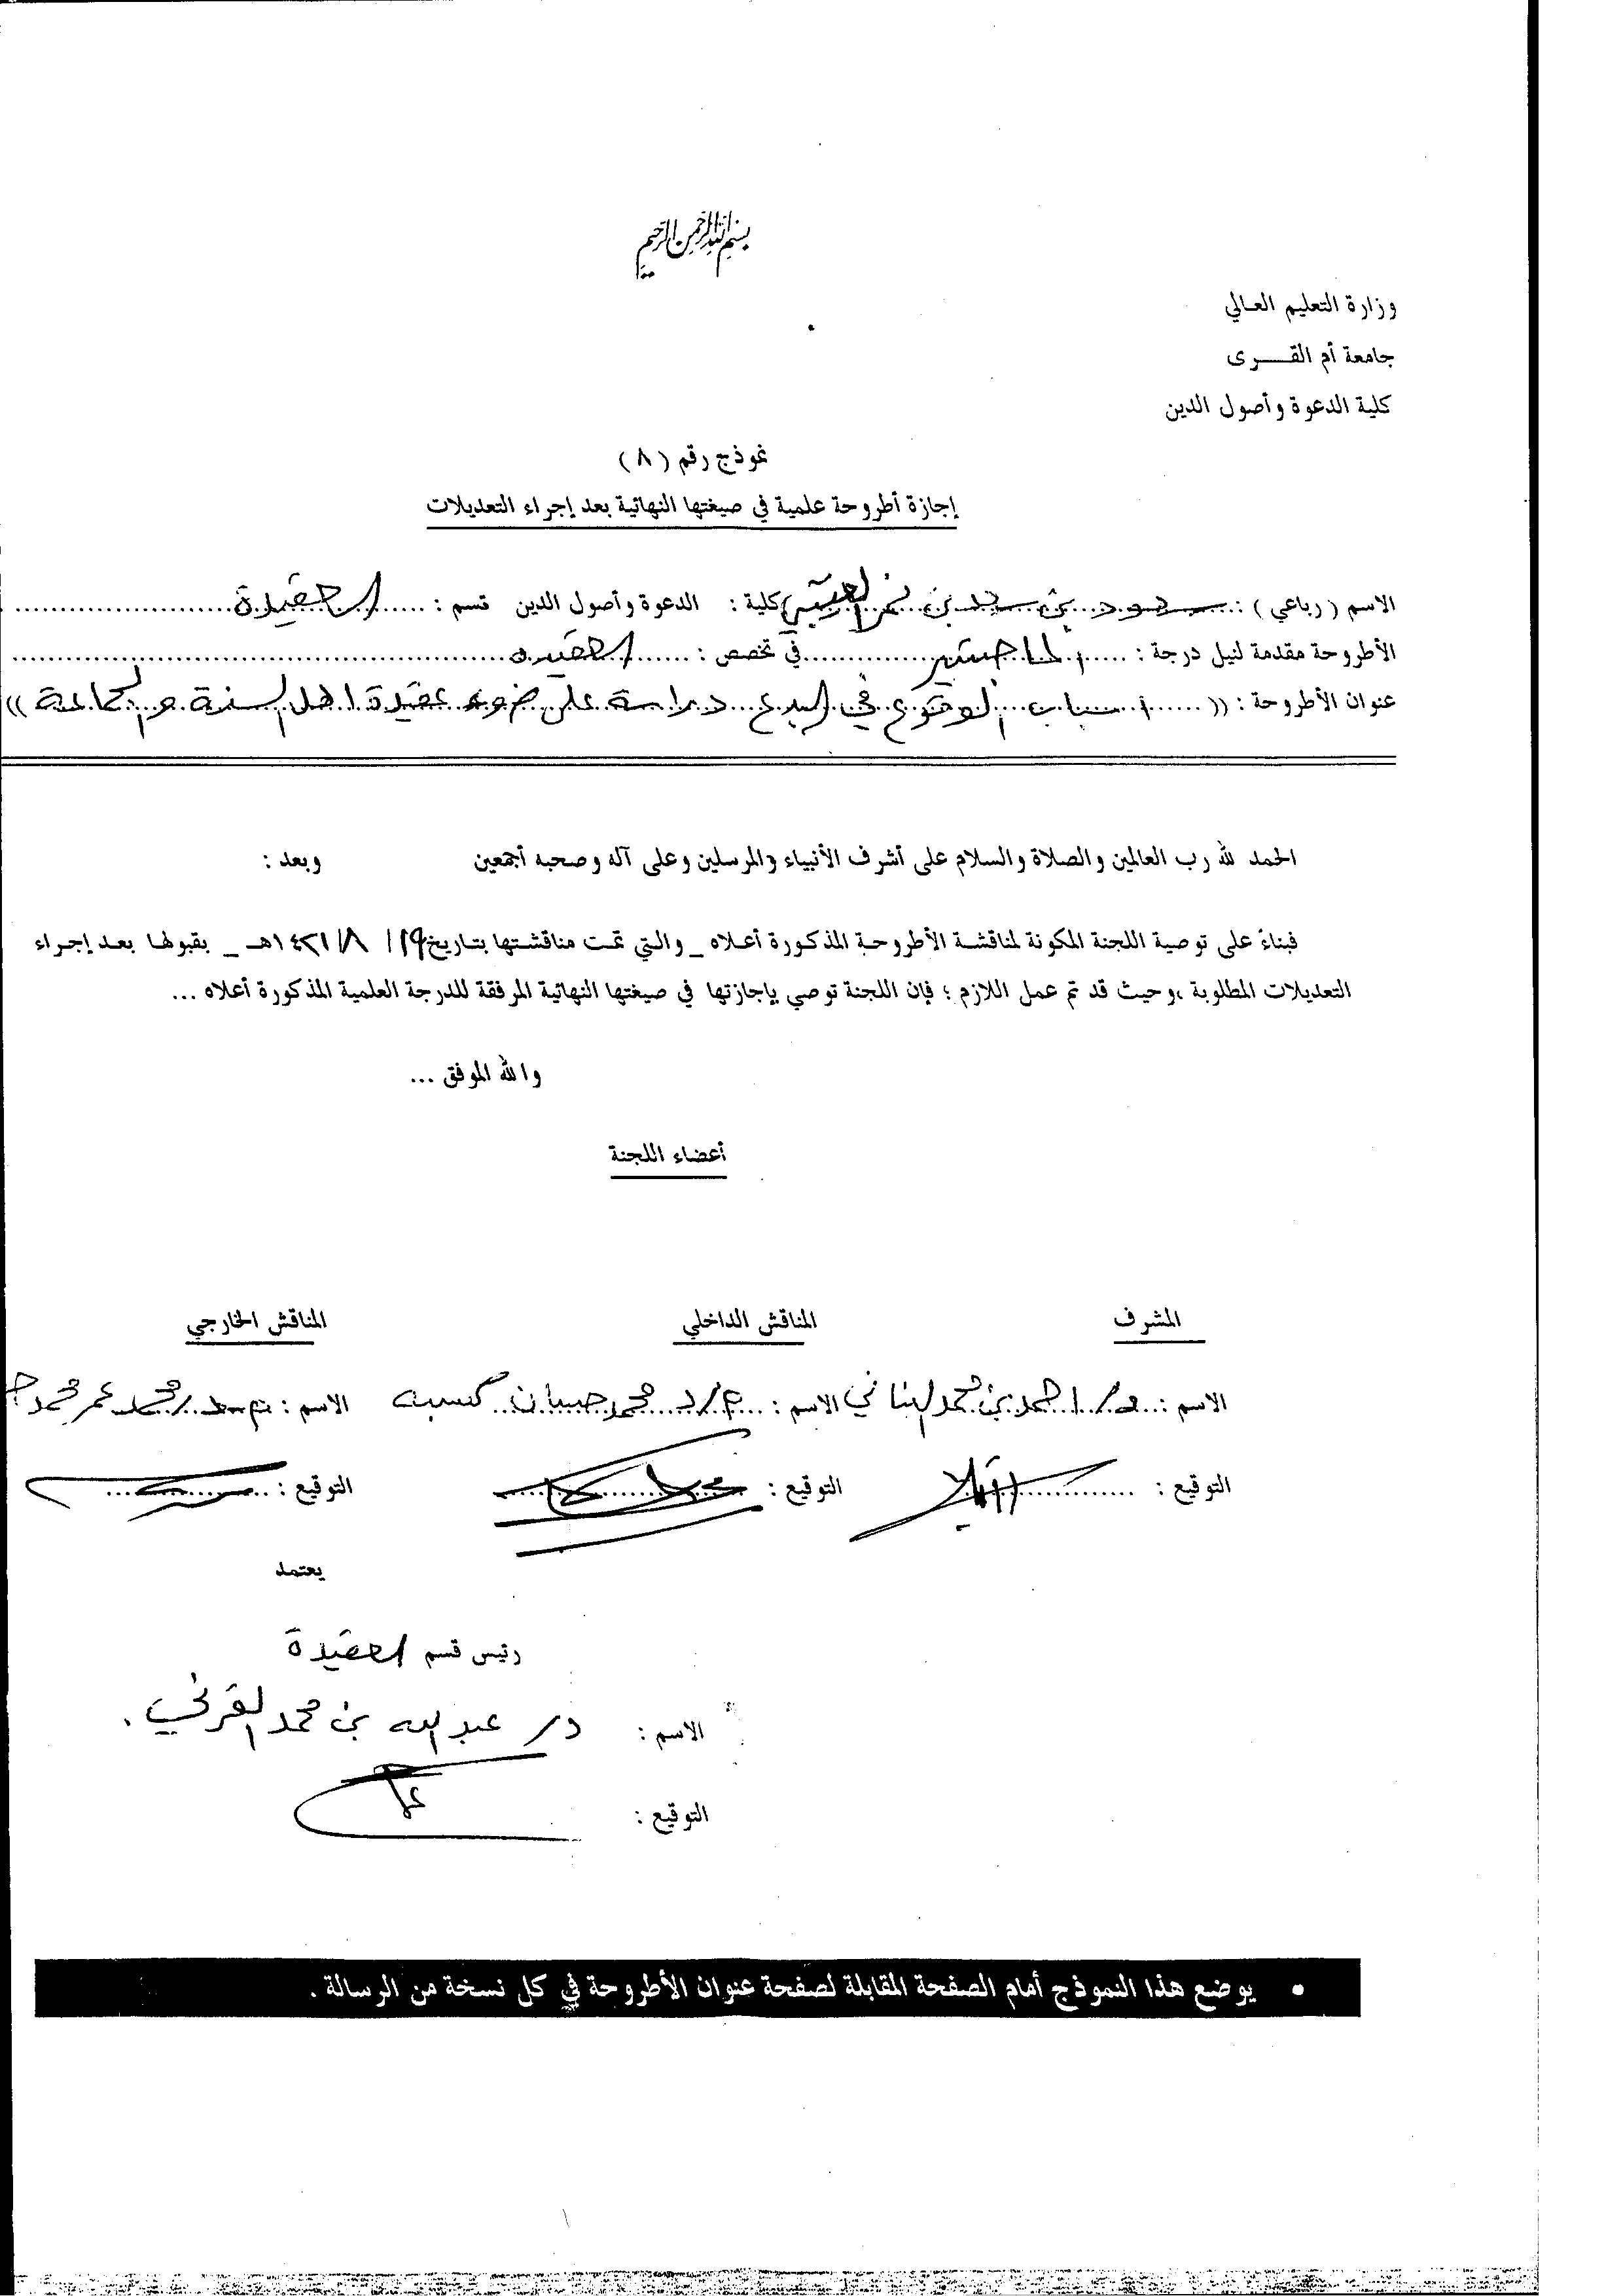 بسم الله الرحمن الرحيم
وزارة التعليم العالي
جامعة أم القرى
كلية الدعوة وأصول الدين
نموذج رقم ( ٨ )
إجازة أطروحة علمية في صيغتها النهائية بعد إجراء التعديلات
الاسم ( رباعي ) : سعود بن سعد بن نمر العتيبي كلية : الدعوة وأصول الدين قسم : العقيدة
الأطروحة مقدمة لنيل درجة : الماجستير في تخصص : العقيده
عنوان الأطروحة : (( اسباب الوقوع في البدع دراسة على ضوء عقيدة اهل السنة والجماعة ))
الحمد لله رب العالمين والصلاة والسلام على أشرف الأنبياء والمرسلين وعلى آله وصحبه أجمعين وبعد :
فبناءً على توصية اللجنة المكونة لمناقشة الأطروحة المذكورة أعلاه _ والتي تمت مناقشتها بتاريخ ١٩/ ٨/ ١٤٢١هـ _ بقبولها بعد إجراء
التعديلات المطلوبة ،وحيث قد تم عمل اللازم ؛ فإن اللجنة توصي بإجازتها في صيغتها النهائية المرفقة للدرجة العلمية المذكورة أعلاه ...
والله الموفق ...
أعضاء اللجنة
المشرف المناقش الداخلي المناقش الخارجي
الاسم : د/ احمد بن محمد البناني الاسم : أ/د محمد حسان كسبه الاسم : محمد عمر محمد
التوقيع : التوقيع : التوقيع :
يعتمد
رئيس قسم العقيدة
الاسم : د/ عبد الله بن محمد القرني .
التوقيع :
• يوضع هذا النموذج أمام الصفحة المقابلة لصفحة عنوان الأطروحة في كل نسخة من الرسالة .